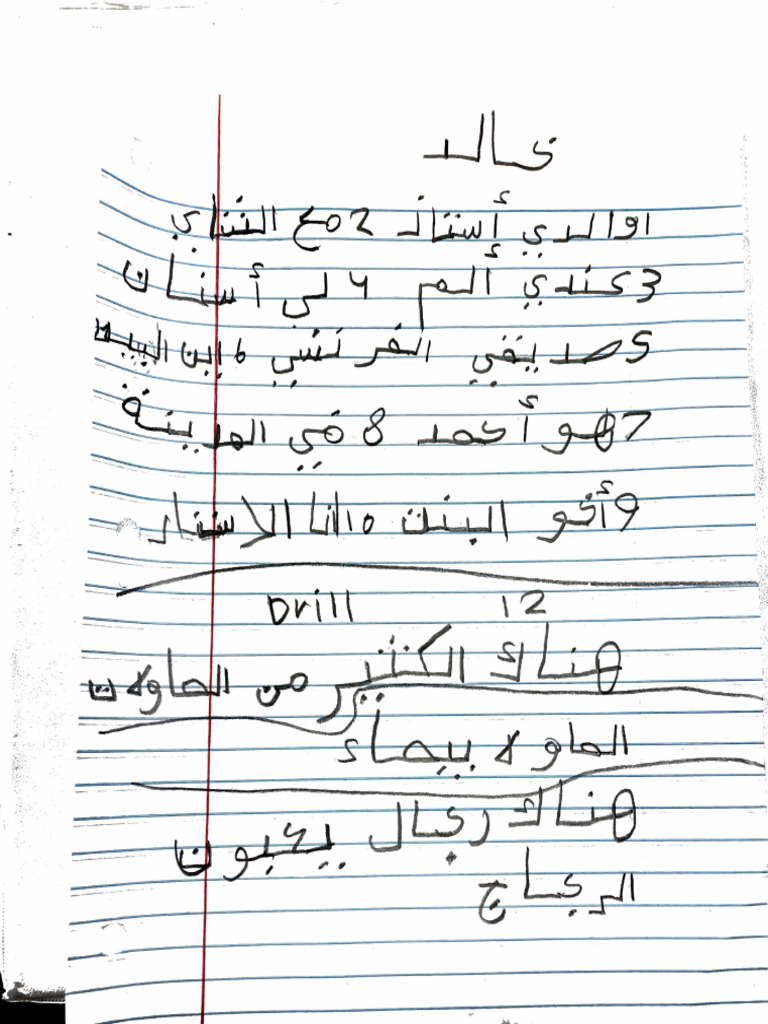 خالد
1 والدي أستاذ 2 مع الشاي
3 عندي ألم 4 لي أسنان
5 صديقي الفرنسي 6 إبن البيت
7 هو أحمد 8 في المدينة
9 أخو البنت 10 انا الاستار
Drill 12
هناك الكثير من الطاولات
الطاولا بيضاء
هناك رجال يحبون
الرجاج